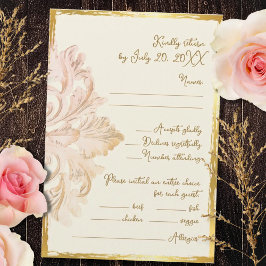 Kindly return
by July 20, 20XX
Names
Accepts gladly
Declines regretfully
Number attending
Please initial an entrée choice
for each guest
beef fish
chicken veggie
Allergies